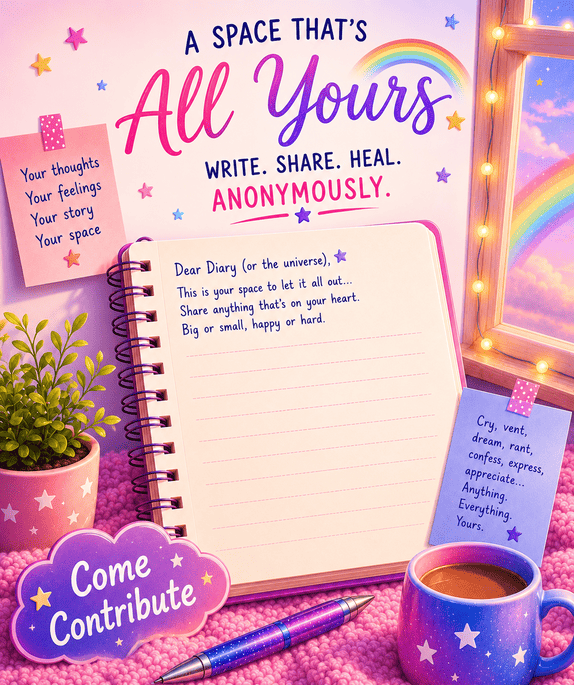 A SPACE THAT'S
All Yours
WRITE. SHARE. HEAL.
ANONYMOUSLY.
Your thoughts
Your feelings
Your story
Your space
Dear Diary (or the universe),
This is your space to let it all out...
Share anything that's on your heart.
Big or small, happy or hard.
Cry, vent,
dream, rant,
confess, express,
appreciate...
Anything.
Everything.
Yours.
Come
Contribute